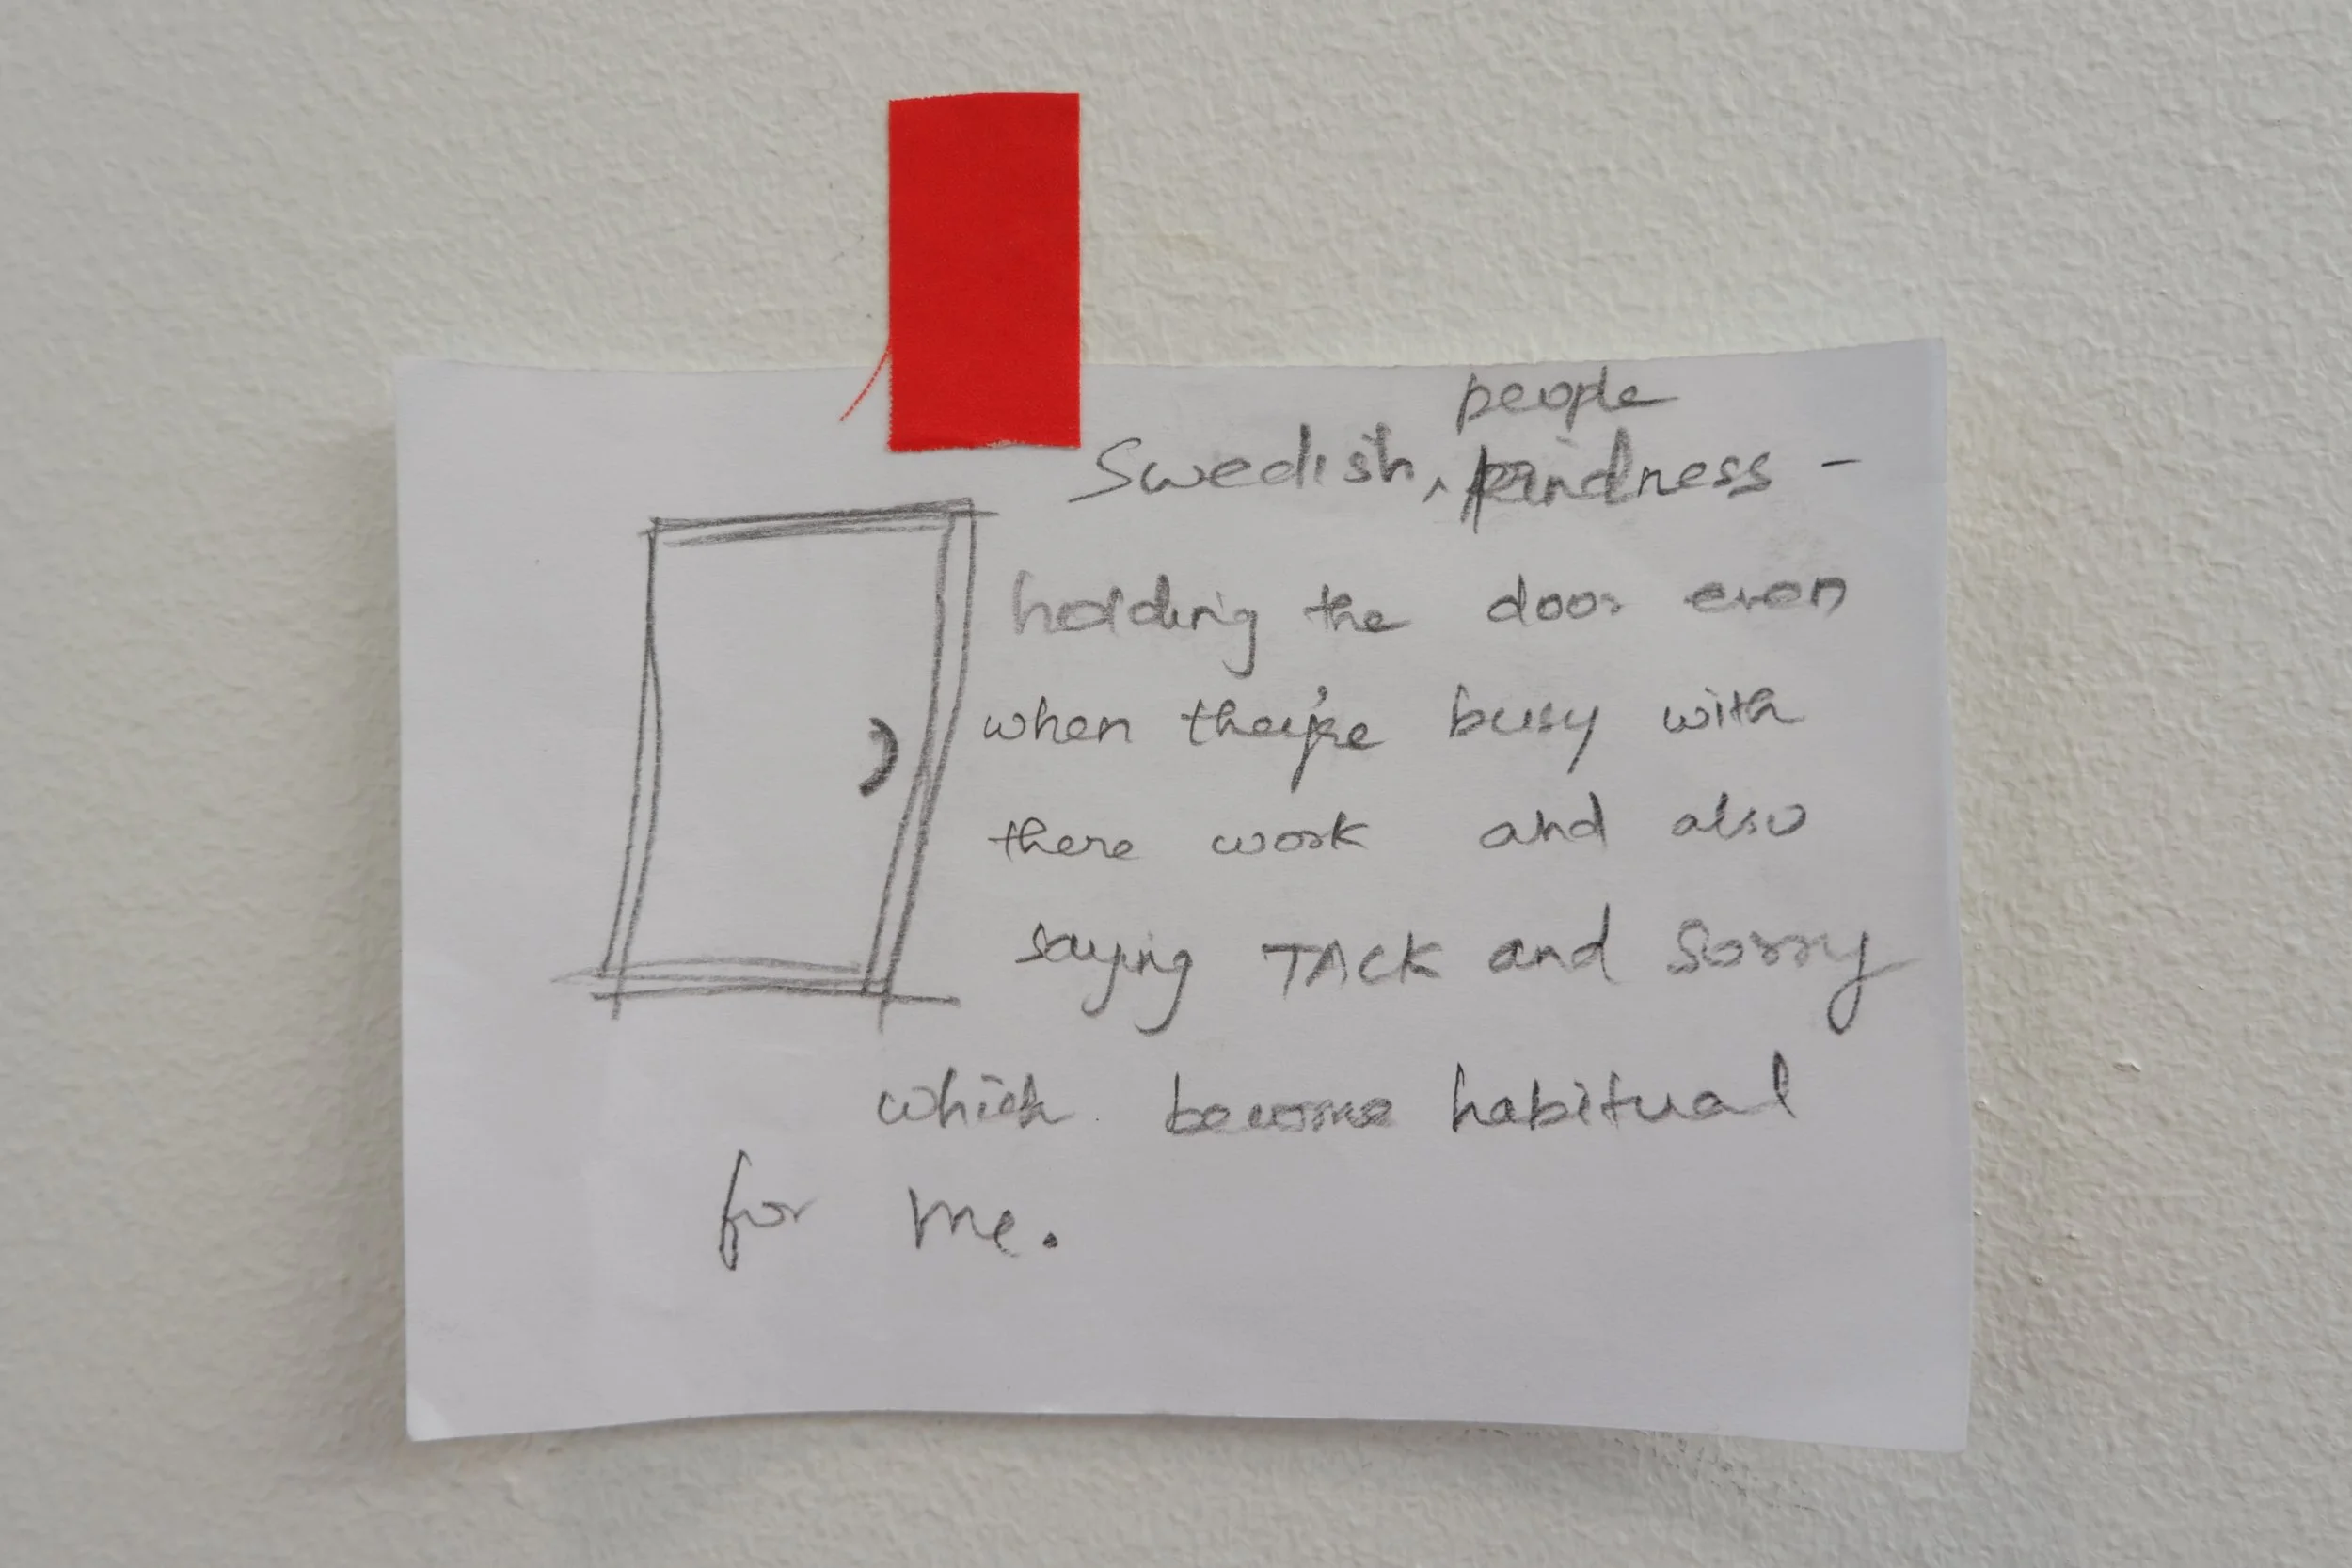 Swedish, people kindness -
holding the door even
when they're busy with
there work and also
saying TACK and Sorry
which become habitual
for me.